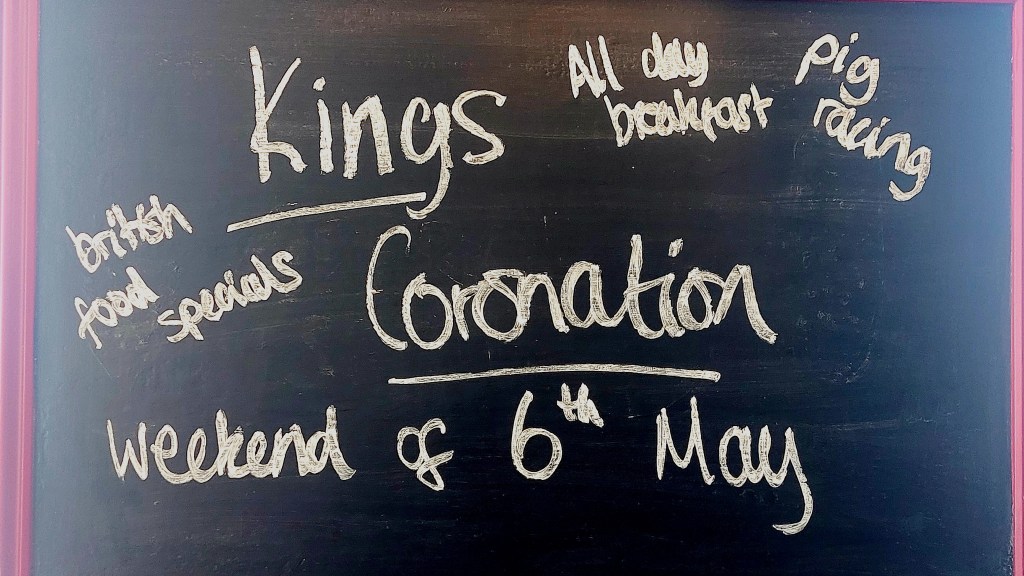 Kings
All day
breakfast
Pig
racing
british
food specials
Coronation
Weekend of 6th May